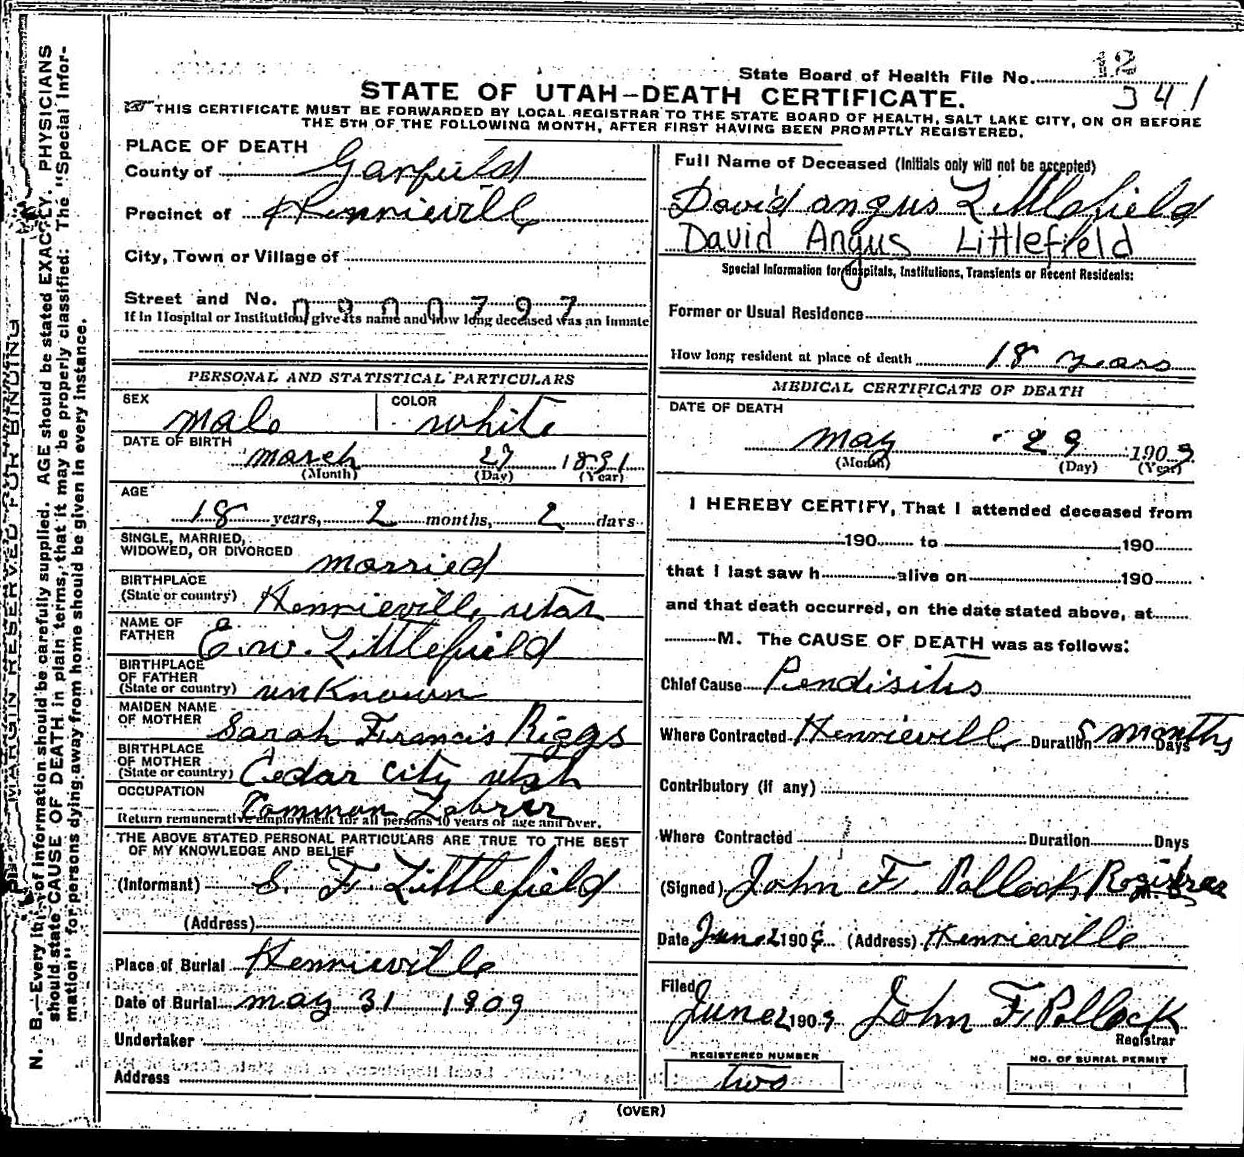 State Board of Health File No. 12
341
STATE OF UTAH—DEATH CERTIFICATE.
THIS CERTIFICATE MUST BE FORWARDED BY LOCAL REGISTRAR TO THE STATE BOARD OF HEALTH, SALT LAKE CITY, ON OR BEFORE
THE 5TH OF THE FOLLOWING MONTH, AFTER FIRST HAVING BEEN PROMPTLY REGISTERED.
PLACE OF DEATH
County of Garfield
Precinct of Henrieville
City, Town or Village of
Street and No.
If in Hospital or Institution, give its name and how long deceased was an inmate
PERSONAL AND STATISTICAL PARTICULARS
SEX
male
COLOR
white
DATE OF BIRTH
march 27 1891
(Month) (Day) (Year)
AGE
18 years, 2 months, 2 days
SINGLE, MARRIED,
WIDOWED, OR DIVORCED married
BIRTHPLACE
(State or country) Henrieville utah
NAME OF
FATHER E. W. Littlefield
BIRTHPLACE
OF FATHER
(State or country) unknown
MAIDEN NAME
OF MOTHER Sarah Francis Riggs
BIRTHPLACE
OF MOTHER
(State or country) Cedar city utah
OCCUPATION
Common Labrer
Return remunerative employment for all persons 10 years of age and over.
THE ABOVE STATED PERSONAL PARTICULARS ARE TRUE TO THE BEST
OF MY KNOWLEDGE AND BELIEF
(Informant) S. F. Littlefield
(Address)
Place of Burial Henrieville
Date of Burial may 31 1909
Undertaker
Address
Full Name of Deceased (Initials only will not be accepted)
David angus Littlefield
David Angus Littlefield
Special Information for Hospitals, Institutions, Transients or Recent Residents:
Former or Usual Residence
How long resident at place of death 18 years
MEDICAL CERTIFICATE OF DEATH
DATE OF DEATH
may 29 1909
(Month) (Day) (Year)
I HEREBY CERTIFY, That I attended deceased from
190 to 190
that I last saw h alive on 190
and that death occurred, on the date stated above, at
M. The CAUSE OF DEATH was as follows:
Chief Cause Pendisitis
Where Contracted Henrieville Duration months Days
Contributory (if any)
Where Contracted Duration Days
(Signed) John F. Pollock Registrar
Date June 2 1909 (Address) Henrieville
Filed
June 2 1909 John F. Pollock
Registrar
REGISTERED NUMBER
two
NO. OF BURIAL PERMIT
(OVER)
MARGIN RESERVED FOR BINDING
N. B.—Every item of information should be carefully supplied. AGE should be stated EXACTLY. PHYSICIANS
should state CAUSE OF DEATH in plain terms, that it may be properly classified. The "Special Infor-
mation" for persons dying away from home should be given in every instance.